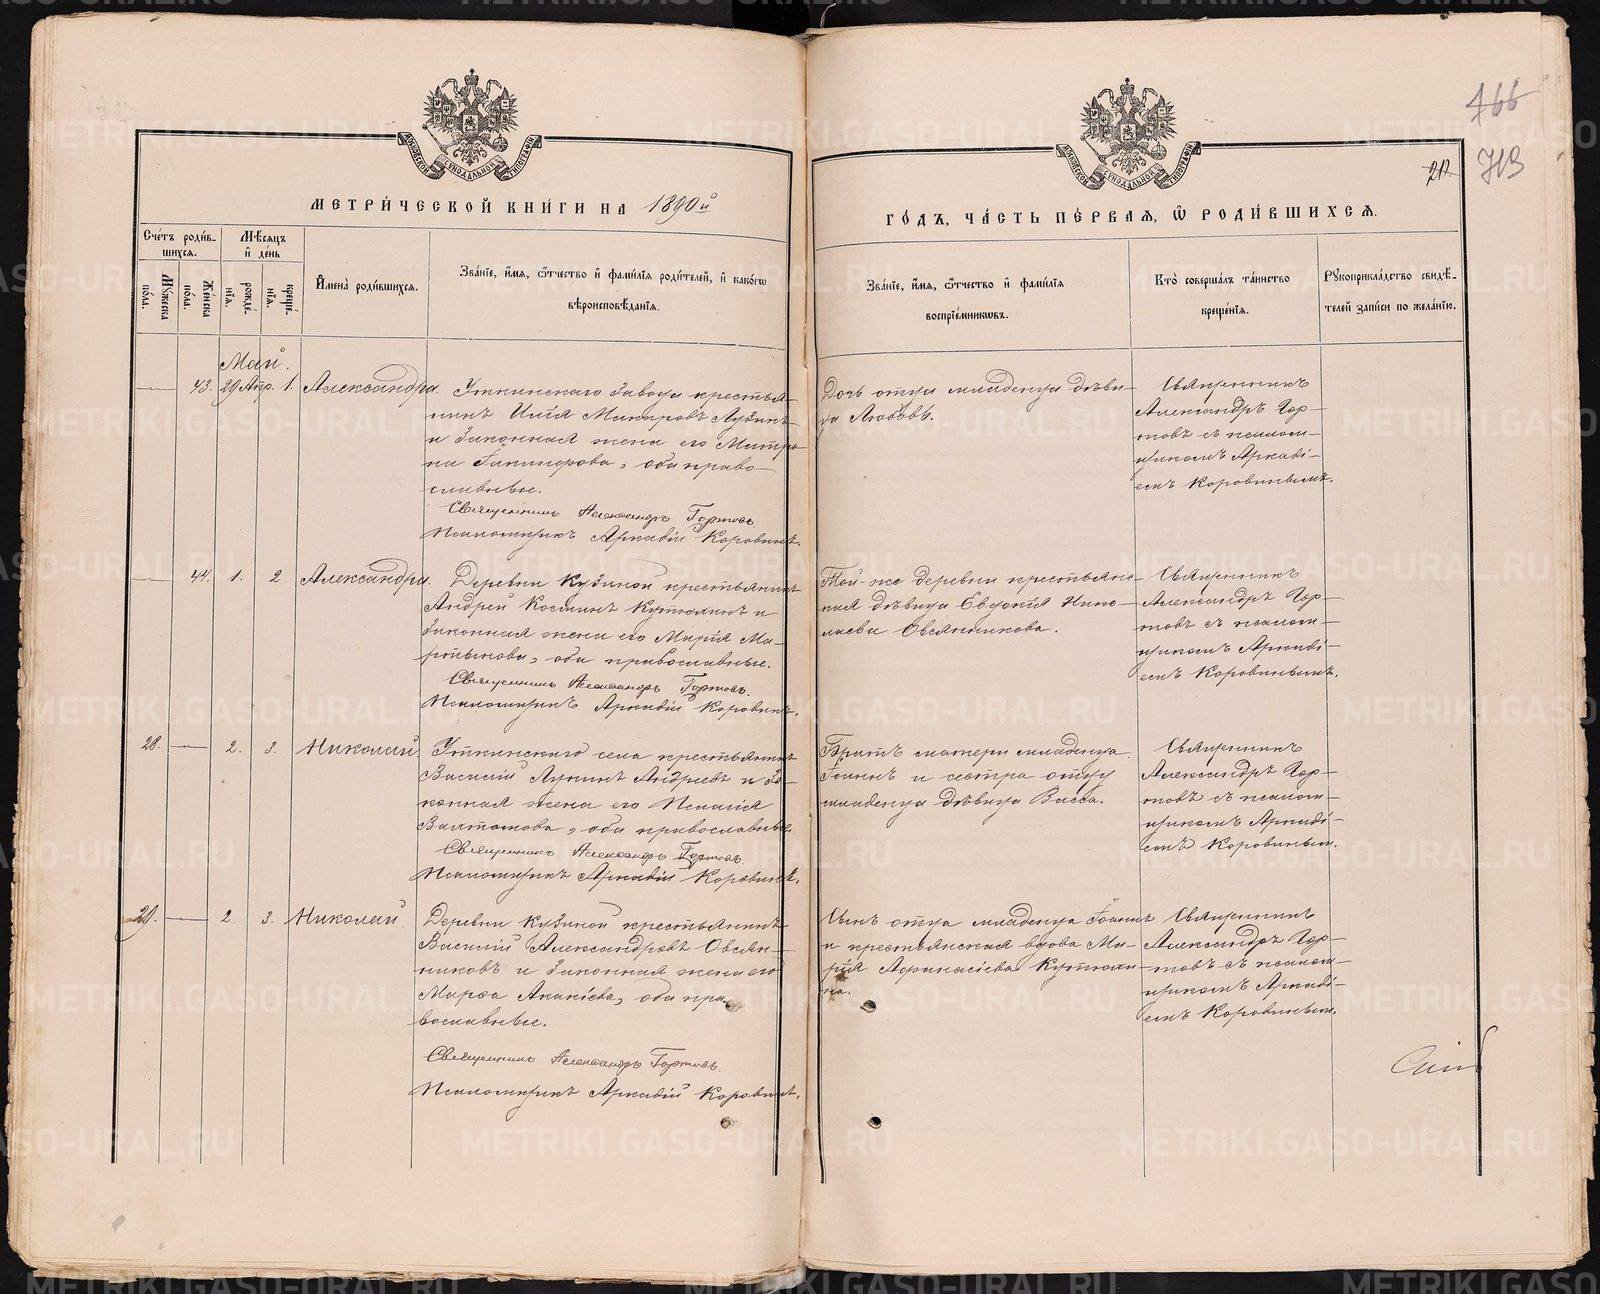 766
713
МЕТРИ́ЧЕСКОЙ КНИ́ГИ НА 1890й
ГО́ДЪ, ЧА́СТЬ ПЕ́РВАЯ, Ѽ РОДИ́ВШИХСЯ.
Сче́тъ роди́в-
шихся.
Мѣ́сяцъ
и҆ де́нь
Му́жеска
по́ла.
Же́нска
по́ла.
рожде́-
нїя.
креще́-
нїя.
И҆мена̀ роди́вшихся.
Зва́нїе, и҆́мя, ѻ҆́тчество и҆ фами́лїя роди́телей, и҆ како́гѡ
вѣроисповѣ́данїя.
Зва́нїе, и҆́мя, ѻ҆́тчество и҆ фами́лїя
воспрїе́мникѡвъ.
Кто̀ соверша́лъ та́инство
креще́нїя.
Рꙋкоприкла́дство свидѣ́-
телей за́писи по жела́нїю.
Май.
43. 29 Апр. 1. Александра.
Уткинскаго завода крестья-
нинъ Илія Макаровъ Лузинъ
и законная жена его Матро
на Гакинфова, оба право-
славные.
Священникъ Александръ Гортовъ
Псаломщикъ Аркадій Коровинъ.
Дочь отца младенца дѣви-
ца Любовь.
Священникъ
Александръ Гор-
товъ съ псалом-
щикомъ Аркаді-
емъ Коровинымъ.
44. 1. 2. Александра.
Деревни Кузиной крестьянинъ
Андрей Косминъ Кутюхинъ и
законная жена его Марія Ма-
ртынова, оба православные.
Священникъ Александръ Гортовъ.
Псаломщикъ Аркадій Коровинъ.
Той-же деревни крестьянс-
кая дѣвица Евдокія Нико-
лаева Овсянникова.
Священникъ
Александръ Гор-
товъ съ псалом-
щикомъ Аркаді-
емъ Коровинымъ.
28. 2. 3. Николай.
Уткинскаго села крестьянинъ
Василій Лукинъ Андреевъ и за-
конная жена его Пелагія
оба православные
Священникъ Александръ Гортовъ.
Псаломщикъ Аркадій Коровинъ.
Братъ матери младенца
Іоаннъ и сестра отца
младенца дѣвица Васса.
Священникъ
Александръ Гор-
товъ съ псалом-
щикомъ Аркаді-
емъ Коровинымъ.
29. 2. 3. Николай.
Деревни Кузиной крестьянинъ
Василій Александровъ Овсян-
никовъ и законная жена его
Марѳа Акакіева, оба пра-
вославные.
Священникъ Александръ Гортовъ.
Псаломщикъ Аркадій Коровинъ.
Сынъ отца младенца Іоаннъ
и крестьянская вдова Ма-
рія Афанасіева Кутюхи-
на.
Священникъ
Александръ Гор-
товъ съ псалом-
щикомъ Аркаді-
емъ Коровинымъ.
METRIKI.GASO-URAL.RU